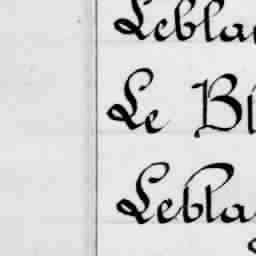 Lebla
Le Bl
Lebla